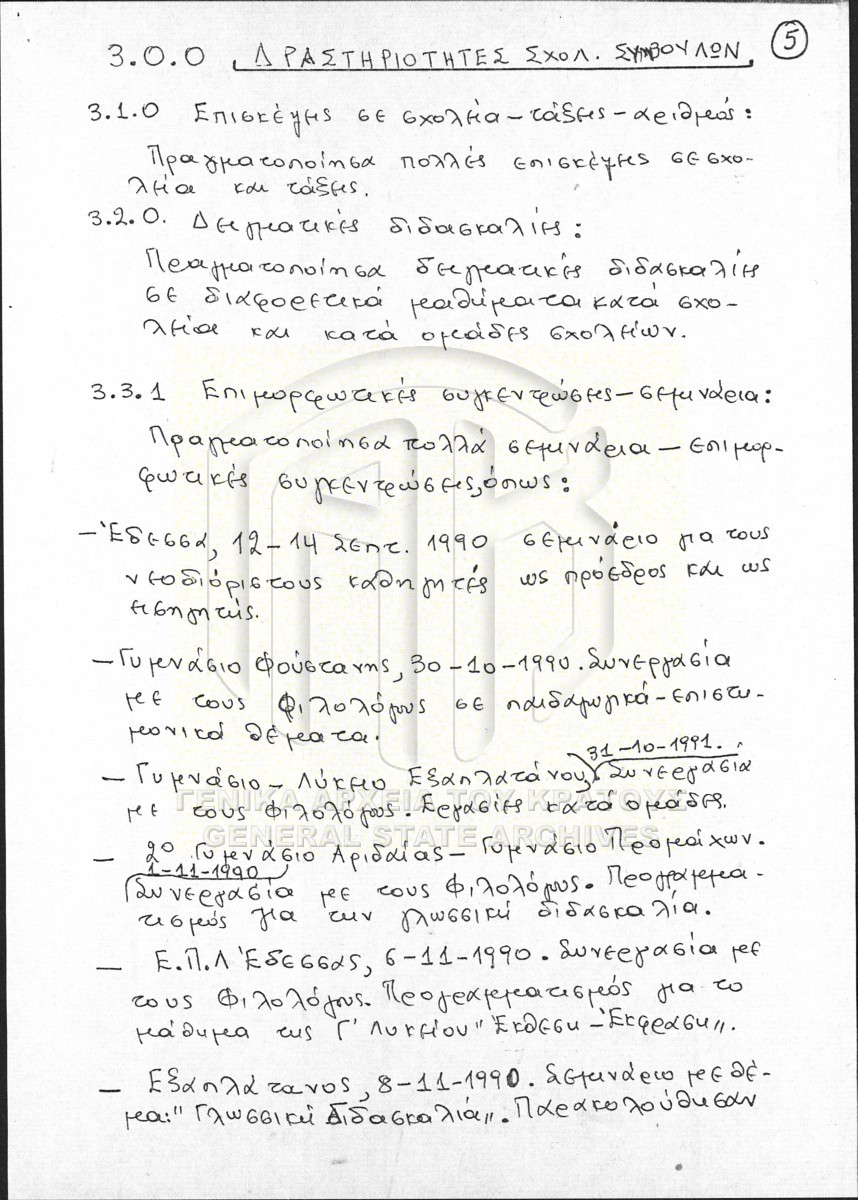 5
3.0.0 ΔΡΑΣΤΗΡΙΟΤΗΤΕΣ ΣΧΟΛ. ΣΥΜΒΟΥΛΩΝ
3.1.0 Επισκέψεις σε σχολεία – τάξεις – αριθμός:
Πραγματοποίησα πολλές επισκέψεις σε σχο-
λεία και τάξεις.
3.2.0. Δειγματικές διδασκαλίες:
Πραγματοποίησα δειγματικές διδασκαλίες
σε διαφορετικά μαθήματα κατά σχο-
λεία και κατά ομάδες σχολείων.
3.3.1 Επιμορφωτικές συγκεντρώσεις – σεμινάρια:
Πραγματοποίησα πολλά σεμινάρια – επιμορ-
φωτικές συγκεντρώσεις, όπως:
– Έδεσσα, 12–14 Σεπτ. 1990 σεμινάριο για τους
νεοδιόριστους καθηγητές ως πρόεδρος και ως
εισηγητής.
– Γυμνάσιο Φούστανης, 30-10-1990. Συνεργασία
με τους Φιλολόγους σε παιδαγωγικά – επιστη-
μονικά θέματα.
31-10-1991.
– Γυμνάσιο – Λύκειο Εξαπλατάνου, Συνεργασία
με τους Φιλολόγους. Εργασίες κατά ομάδες.
ΓΕΝΙΚΑ ΑΡΧΕΙΑ ΤΟΥ ΚΡΑΤΟΥΣ
GENERAL STATE ARCHIVES
– 2ο Γυμνάσιο Αριδαίας – Γυμνάσιο Προμάχων.
1-11-1990
Συνεργασία με τους Φιλολόγους. Προγραμμα-
τισμός για την γλωσσική διδασκαλία.
– Ε.Π.Λ Έδεσσας, 6-11-1990. Συνεργασία με
τους Φιλολόγους. Προγραμματισμός για το
μάθημα της Γ' Λυκείου "Έκθεση – Έκφραση".
– Εξαπλάτανος, 8-11-1990. Σεμινάριο με θέ-
μα: "Γλωσσική Διδασκαλία". Παρακολούθησαν